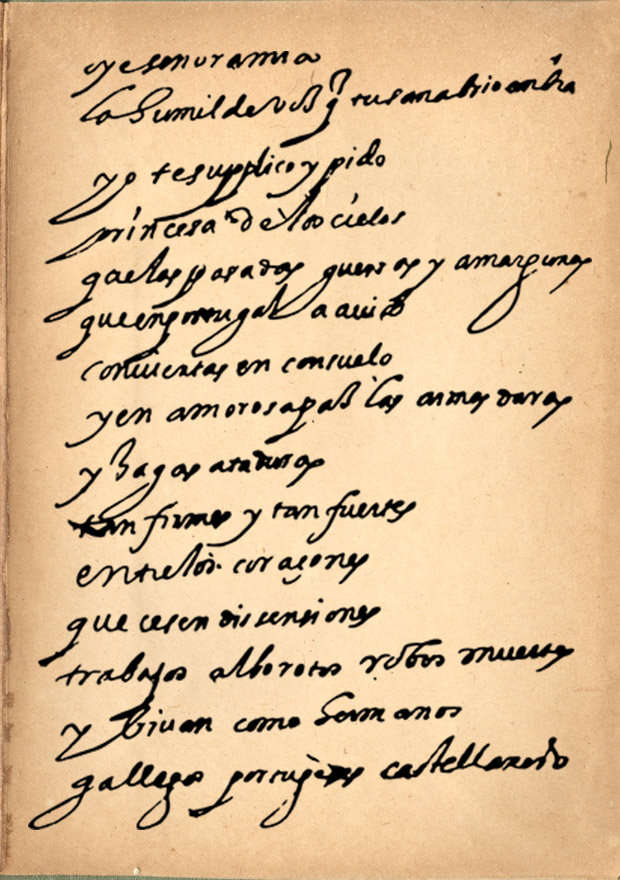 oye señora mia
la humilde voz q̃ tu sana brio ant̃ra
yo te supplico y pido
princesa de los cielos
q̃ a las pasadas guerras y amarguras
que en portugal a auido
conuiertas en consuelo
y en amorosa paz las armas duras
y hagas ataduras
tan firmes y tan fuertes
entre los coraçones
que cesen dissensiones
trabajos alborotos robos muertes
y biuan como hermanos
gallegos portugeses castellanos